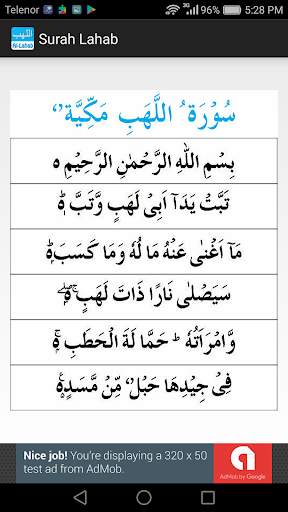 Telenor 4G 75% 5:28 PM
Surah Lahab
سُوْرَةُ اللَّهَبِ مَكِّيَّةٌ
بِسْمِ اللهِ الرَّحْمٰنِ الرَّحِيْمِ ہ
تَبَّتْ يَدَآ اَبِىْ لَهَبٍ وَّتَبَّ ؕ
مَآ اَغْنٰى عَنْهُ مَا لُهٗ وَمَا كَسَبَ ؕ
سَيَصْلٰى نَارًا ذَاتَ لَهَبٍ ۖ
وَّامْرَاَتُهٗ ؕ حَمَّا لَةَ الْحَطَبِ ۚ
فِىْ جِيْدِهَا حَبْلٌ مِّنْ مَّسَدٍ
Nice job! You're displaying a 320 x 50
test ad from AdMob.
AdMob by Google